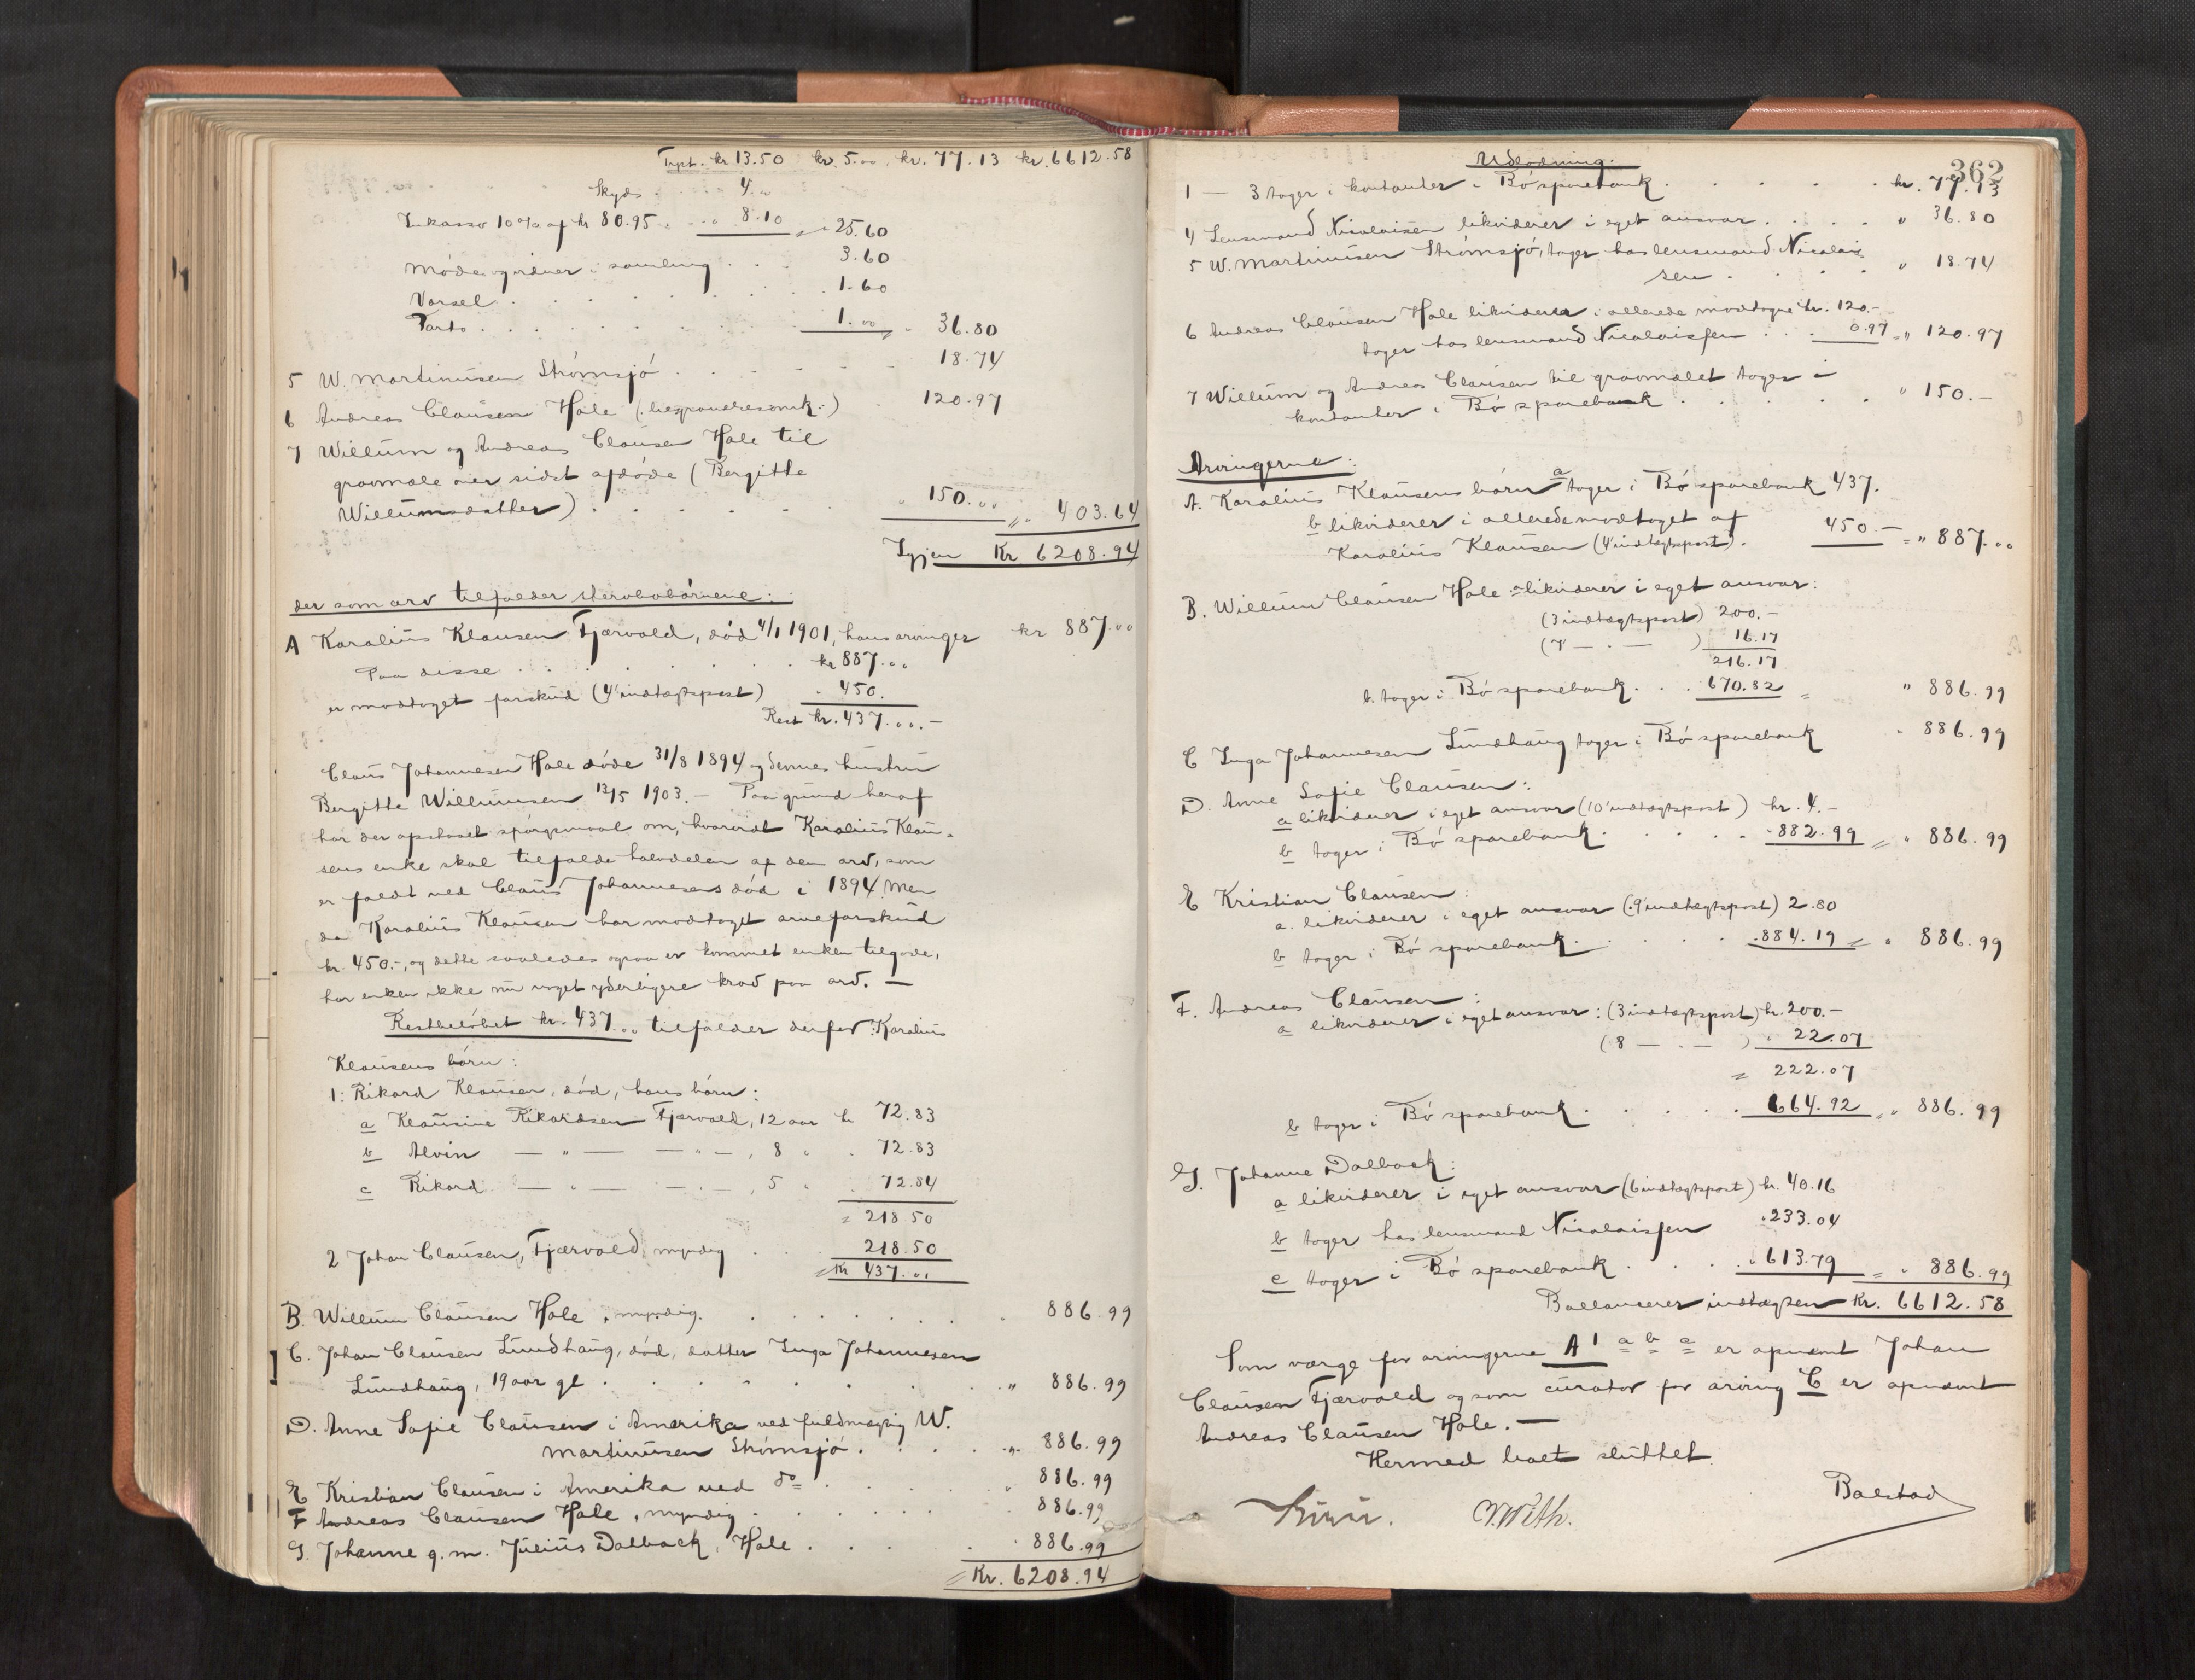 Trpt. kr 13.50 kr. 5.00, kr. 77.13 kr. 6612.58
Skyds . . . . 4.00
Inkasso 10% af kr 80.95 . . . . 8.10 = . 25.60
Møde og vidner i samling . . . 3.60
Varsel . . . . . . . . 1.60
Porto . . . . . . . . 1.00 = . 36.80
5 W. Martinusen Strömsjö . . . . . . 18.74
6 Andreas Clausen Hole (:begravelsesomk:) . 120.97
7 Willum og Andreas Clausen Hole til
gravmæle over sidst afdøde (Bergitte
Willumsdatter) . . . . . . " 150.00 = " 403.64
Igjen Kr 6208.94
der som arv tilfalder stervbobörnene:
A Karolius Klausen Fjærvold, död 4/1 1901, hans arvinger kr 887.00
Paa disse . . . . . . . kr 887.00
er modtaget forskud (4' indtægtspost) . 450.
Rest kr. 437.00.–
Claus Johannesen Hole döde 31/8 1894 og dennes hustru
Bergitte Willumsen 13/5 1903. – Paa grund heraf
har der opstaaet spörgsmaal om, hvorvidt Karolius Klau-
sens enke skal tilfalde halvdelen af den arv, som
er faldt ved Claus Johannesens död i 1894. Men
da Karolius Klausen har modtaget arveforskud
kr. 450.–, og dette saaledes ogsaa er kommet enken tilgode,
har enken ikke nu noget yderligere krav paa arv. –
Restbelöbet kr. 437.00 tilfalder derfor: Karolius
Klausens börn:
1: Rikard Klausen, död, hans börn:
a Klausine Rikardsen Fjærvold, 12 aar kr 72.83
b Alvin — " — — " —, 8 " . 72.83
c Rikard — " — — . —, 5 " . 72.84
= 218.50
2 Johan Clausen, Fjærvold, myndig . . 218.50
= Kr 437.00
B. Willum Clausen Hole, myndig . . . . . . . 886.99
C. Johan Clausen Lundhaug, död, datter Inga Johannesen
Lundhaug, 19 aar gl . . . . . . . . . " 886.99
D. Anne Sofie Clausen i Amerika ved fuldmægtig W.
Martinusen Strömsjö . . . . . " . 886.99
E Kristian Clausen i Amerika ved do . . . . . " 886.99
F Andreas Clausen Hole, myndig . . . . . . 886.99
G. Johanne g. m. Julius Dalback, Hole . . . . . 886.99
= Kr. 6208.94
362
Udlodning.
1 — 3 tager i kontanter i Bö sparebank . . . . . kr. 77.13
4 Lensmand Nicolaisen likviderer i eget ansvar . . . . " 36.80
5 W. Martinusen Strömsjö, tager hos lensmand Nicolai-
sen . . . . " 18.74
6 Andreas Clausen Hole likviderer i allerede modtagne kr. 120.–
tager hos lensmand Nicolaissen . . . 0.97 = " 120.97
7 Willum og Andreas Clausen til gravmælet tager i
kontanter i Bö sparebank . . . . . " 150.–
Arvingerne:
A. Karolius Klausens börn a tager i Bö sparebank 437.
b likviderer i allerede modtaget af
Karolius Klausen (4' indtægtspost) . 450.– = " 887.00
B. Willum Clausen Hole a likviderer i eget ansvar:
(3 indtægtspost) 200.–
(7 — . — ) 16.17
216.17
b. tager i Bö sparebank . . . 670.82 = " 886.99
C Inga Johannesen Lundhaug tager i Bö sparebank . 886.99
D. Anne Sofie Clausen:
a likviderer i eget ansvar (10' indtægtspost) kr. 4.–
b tager i Bö sparebank . . . . . . 882.99 = " 886.99
E Kristian Clausen:
a. likviderer i eget ansvar (9' indtægtspost) 2.80
b tager i Bö sparebank . . . . . . 884.19 = " 886.99
F. Andreas Clausen:
a likviderer i eget ansvar: (3 indtægtspost) kr. 200.–
(8 — . — ) " 22.07
= 222.07
b tager i Bö sparebank . . . . . 664.92 = " 886.99
G. Johanne Dalback:
a likviderer i eget ansvar (6 indtægtspost) kr. 40.16
b tager hos lensmand Nicolaissen . 233.04
c tager i Bö sparebank . . . . 613.79 = " 886.99
Ballancerer indtægten Kr. 6612.58
Som værge for arvingerne A 1 a b c er opnævnt Johan
Clausen Fjærvold og som curator for arving C er opnævnt
Andreas Clausen Hole. –
Hermed boet sluttet.
Balstad